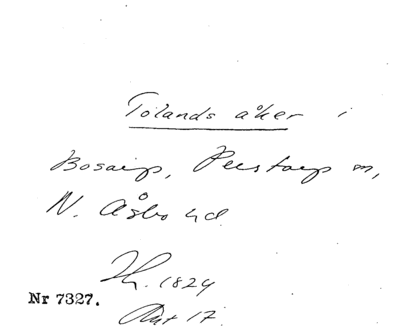 Tolands åker i
Bosarp, Perstorp m,
N. Åsbo hd.
Th. 1824
Nr 7327.
Akt 17.